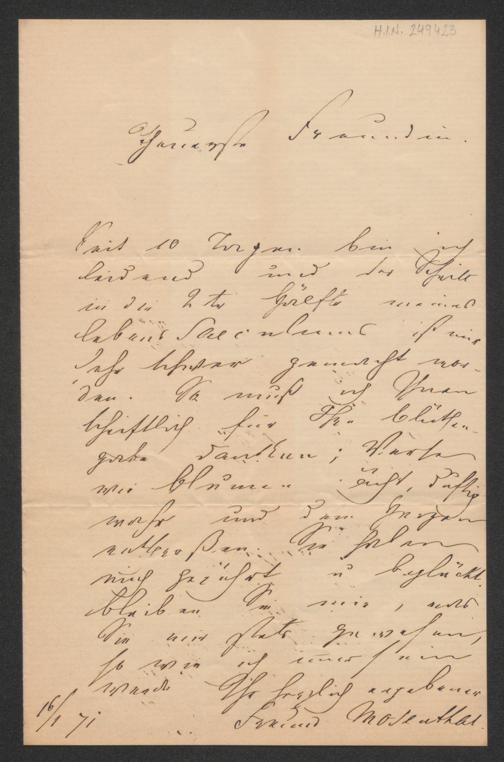 H.I.N. 249423
Theuerste Freundin.
Seit 10 Tagen bin ich
leidend und der Schritt
in die 2te Hälfte meines
Lebens Saeculums ist mir
sehr schwer gemacht wor-
den. So muß ich Ihnen
schriftlich für Ihre Blüthen-
gabe danken; Verse
wie Blumen ächt, duftig
wahr und dem Herzen
entsproßen. Sie haben
mich gerührt u beglückt.
Bleiben Sie mir, was
Sie mir stets gewesen,
so wie ich immer sein
werde Ihr herzlich ergebener
16/1 71 Freund Mosenthal.